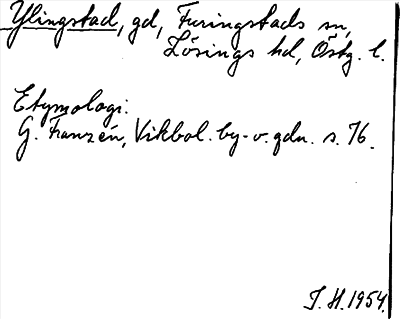 Ylingstad, gd, Furingstads sn,
Lösings hd, Östg. l.
Etymologi:
G. Franzén, Vikbol. by- o. gdn. s. 76.
J. H. 1954.